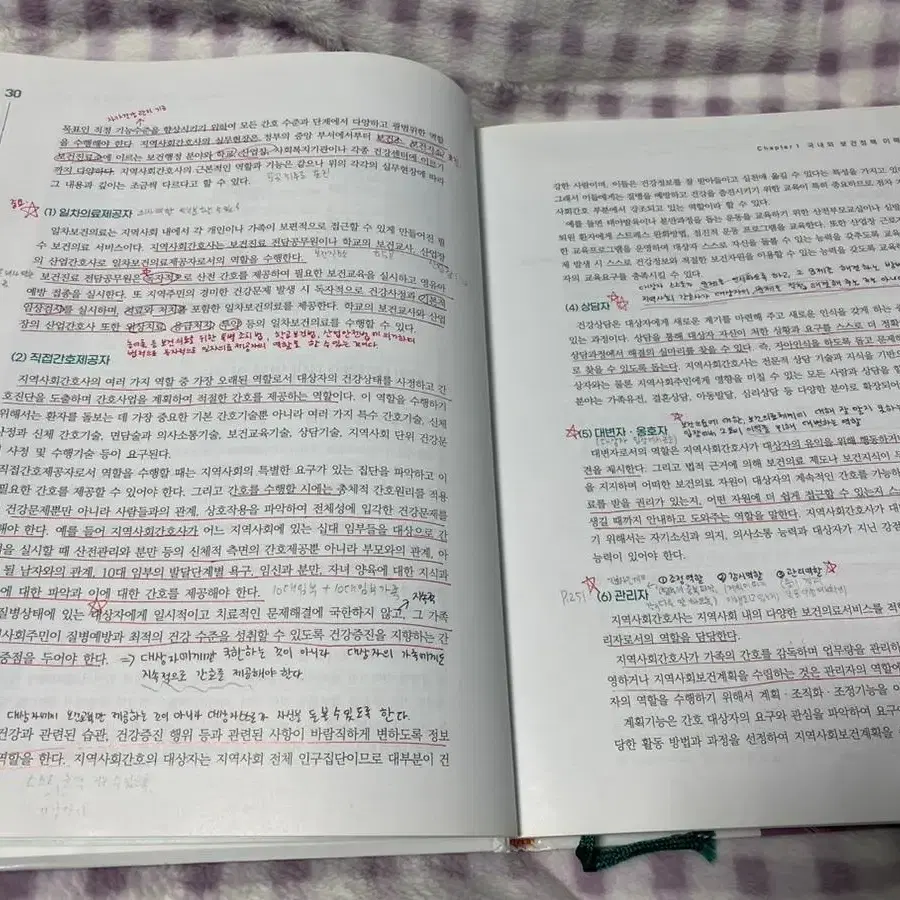 30
목표인 적정 기능수준을 향상시키기 위하여 모든 간호 수준과 단계에서 다양하고 광범위한 역할
을 수행해야 한다. 지역사회간호사의 실무현장은 정부의 중앙 부서에서부터 보건소, 보건지소,
보건진료소에 이르는 보건행정 분야와 학교, 산업장, 사회복지기관이나 각종 건강센터에 이르기
까지 다양하다. 지역사회간호사의 근본적인 역할과 기능은 같으나 위의 각각의 실무현장에 따라
그 내용과 깊이는 조금씩 다르다고 할 수 있다.
(1) 일차의료제공자
일차보건의료는 지역사회 내에서 각 개인이나 가족이 보편적으로 접근할 수 있게 만들어진 필
수 보건의료 서비스이다. 지역사회간호사는 보건진료 전담공무원이나 학교의 보건교사, 산업장
의 산업간호사로 일차보건의료제공자로서의 역할을 수행한다.
보건진료 전담공무원은 독자적으로 산전 간호를 제공하여 필요한 보건교육을 실시하고 영유아
예방 접종을 실시한다. 또 지역주민의 경미한 건강문제 발생 시 독자적으로 건강사정과 기본적
임상검사를 실시하며, 치료와 처치를 포함한 일차보건의료를 제공한다. 학교의 보건교사와 산업
장의 산업간호사 또한 응급처치, 투약 등의 일차보건의료를 수행할 수 있다.
(2) 직접간호제공자
지역사회간호사의 여러 가지 역할 중 가장 오래된 역할로서 대상자의 건강상태를 사정하고 간
호진단을 도출하며 간호사업을 계획하여 적절한 간호를 제공하는 역할이다. 이 역할을 수행하기
위해서는 환자를 돌보는 데 가장 중요한 기본 간호기술뿐 아니라 여러 가지 특수 간호기술, 신체
사정과 신체 간호기술, 면담술과 의사소통기술, 보건교육기술, 상담기술, 지역사회 단위 건강문
사정 및 수행기술 등이 요구된다.
직접간호제공자로서 역할을 수행할 때는 지역사회의 특별한 요구가 있는 집단을 파악하고 이
필요한 간호를 제공할 수 있어야 한다. 그리고 간호를 수행할 시에는 총체적 간호원리를 적용
건강문제뿐만 아니라 사람들과의 관계, 상호작용을 파악하여 전체성에 입각한 건강문제를
해야 한다. 예를 들어 지역사회간호사가 어느 지역사회에 있는 십대 임부들을 대상으로 간
을 실시할 때 산전관리와 분만 등의 신체적 측면의 간호제공뿐 아니라 부모와의 관계, 아
된 남자와의 관계, 10대 임부의 발달단계별 욕구, 임신과 분만, 자녀 양육에 대한 지식과
에 대한 파악과 이에 대한 간호를 제공해야 한다. 10대임부 + 10대임부가족
질병상태에 있는 대상자에게 일시적이고 치료적인 문제해결에 국한하지 않고, 그 가족
사회주민이 질병예방과 최적의 건강 수준을 성취할 수 있도록 건강증진을 지향하는 간
중점을 두어야 한다. ⇒ 대상자에게만 국한하는 것이 아니라 대상자의 가족에게도
지속적으로 간호를 제공해야 한다.
대상자에게 보건교육만 제공하는 것이 아니라 대상자 스스로가 자신을 돌볼 수 있도록 한다.
건강과 관련된 습관, 건강증진 행위 등과 관련된 사항이 바람직하게 변하도록 정보
역할을 한다. 지역사회간호의 대상자는 지역사회 전체 인구집단이므로 대부분이 건
Chapter 1 국내외 보건정책 이해
강한 사람이며, 이들은 건강정보를 잘 받아들이고 실천에 옮길 수 있다는 특성을 가지고 있
그래서 이들에게는 질병을 예방하고 건강을 증진시키기 위한 교육이 특히 중요하므로 전자
사회간호 부분에서 강조되고 있는 역할이라 할 수 있다.
예를 들면 태아발육이나 분만과정을 돕는 운동을 교육하기 위한 산전부모교실이나 심발
퇴원 환자에게 스트레스 완화방법, 점진적 운동 프로그램을 교육한다. 또한 산업장 근로자
한 교육프로그램을 운영하여 대상자 스스로 자신을 돌볼 수 있는 능력을 갖추도록 교육
제 발생 시 스스로 건강정보와 적절한 보건자원을 이용할 수 있는 능력을 갖도록 교육하
자의 교육요구를 충족시킬 수 있다.
(4) 상담자
건강상담은 대상자에게 새로운 계기를 마련해 주고 새로운 인식을 갖게 하는
있는 과정이다. 상담을 통해 대상자 자신이 처한 상황과 요구를 스스로 더 정확
상담과정에서 해결의 실마리를 찾을 수 있다. 즉, 자아인식을 하도록 돕고 문제
로 찾을 수 있도록 돕는다. 지역사회간호사는 전문적 상담 기술과 지식을 기반으
상자와는 물론 지역사회주민에게 영향을 미칠 수 있는 모든 사람과 상담을 할
분야는 가족유전, 결혼상담, 아동발달, 심리상담 등 다양한 분야로 확장되어
(5) 대변자 · 옹호자
대변자로서의 역할은 지역사회간호사가 대상자의 유익을 위해 행동하거나
견을 제시한다. 그리고 법적 근거에 의해 보건의료 제도나 보건지식이 부
을 지지하며 어떠한 보건의료 자원이 대상자의 계속적인 간호를 가능하
료를 받을 권리가 있는지, 어떤 자원에 더 쉽게 접근할 수 있는지 스
생길 때까지 안내하고 도와주는 역할을 말한다. 지역사회간호사가 대
기 위해서는 자기소신과 의지, 의사소통 능력과 대상자가 지닌 강점
능력이 있어야 한다.
① 조정역할 ② 감시역할 ③ 관리역할
P.251
(6) 관리자
지역사회간호사는 지역사회 내의 다양한 보건의료서비스를 적
리자로서의 역할을 담당한다.
지역사회간호사가 가족의 간호를 감독하며 업무량을 관리하
영하거나 지역사회보건계획을 수립하는 것은 관리자의 역할에
자의 역할을 수행하기 위해서 계획 · 조직화 · 조정기능을
계획기능은 간호 대상자의 요구와 관심을 파악하여 요구
당한 활동 방법과 과정을 선정하여 지역사회보건계획을